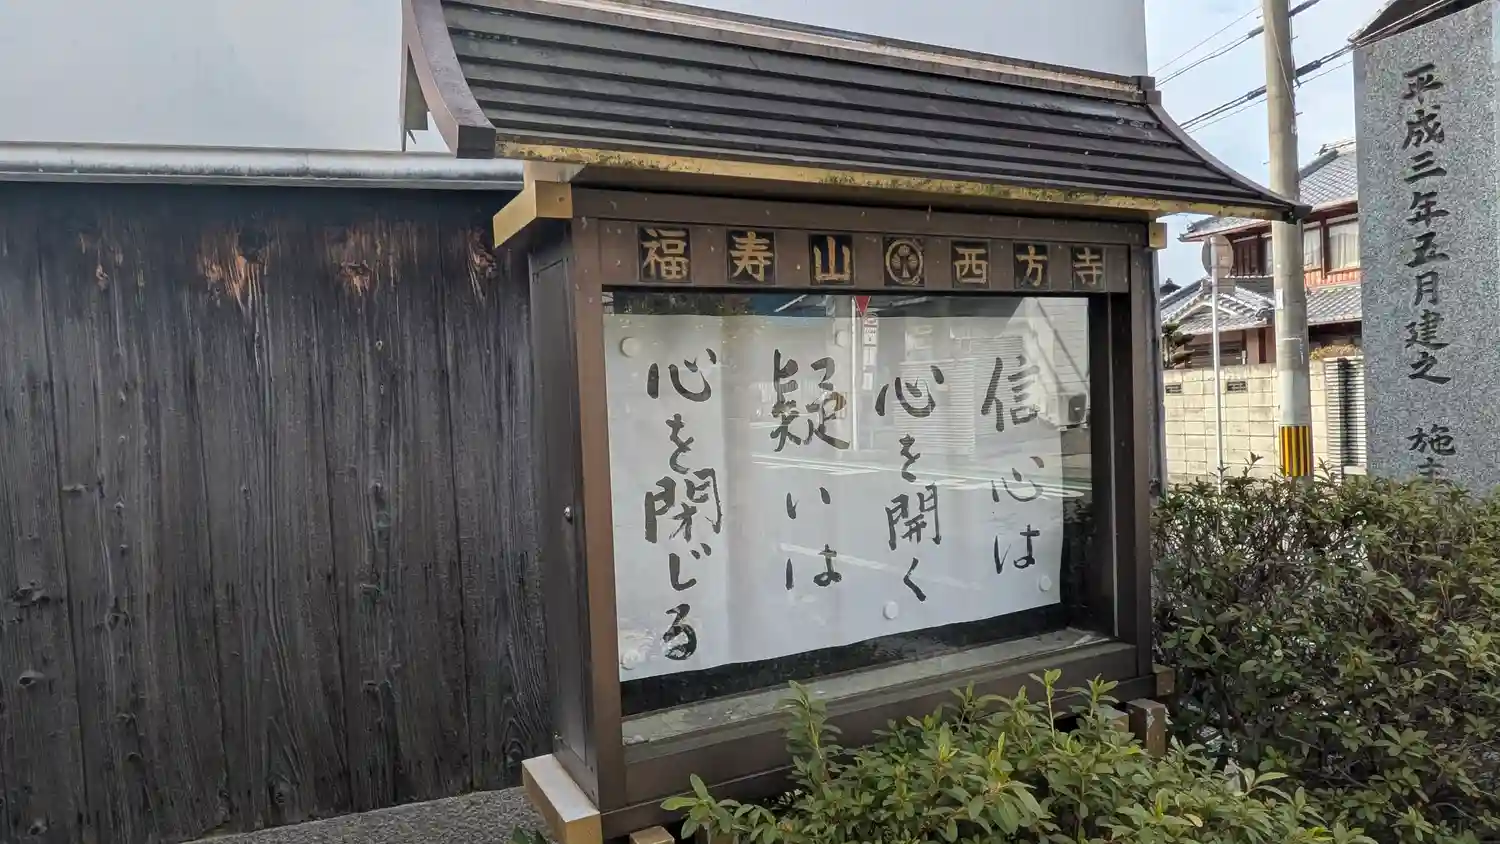 福寿山 西方寺
信心は
心を開く
疑いは
心を閉じる
平成三年五月建之 施主